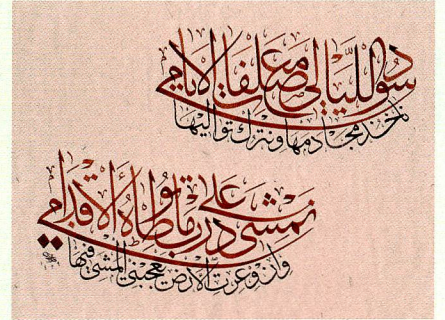 سود الليالي مع صلفات الايامي
ناخذ مجادمها ونترك تواليها
نمشي على درب ما توطاه الاقدامي
وان وعرت الارض يعجبني المشي فيها